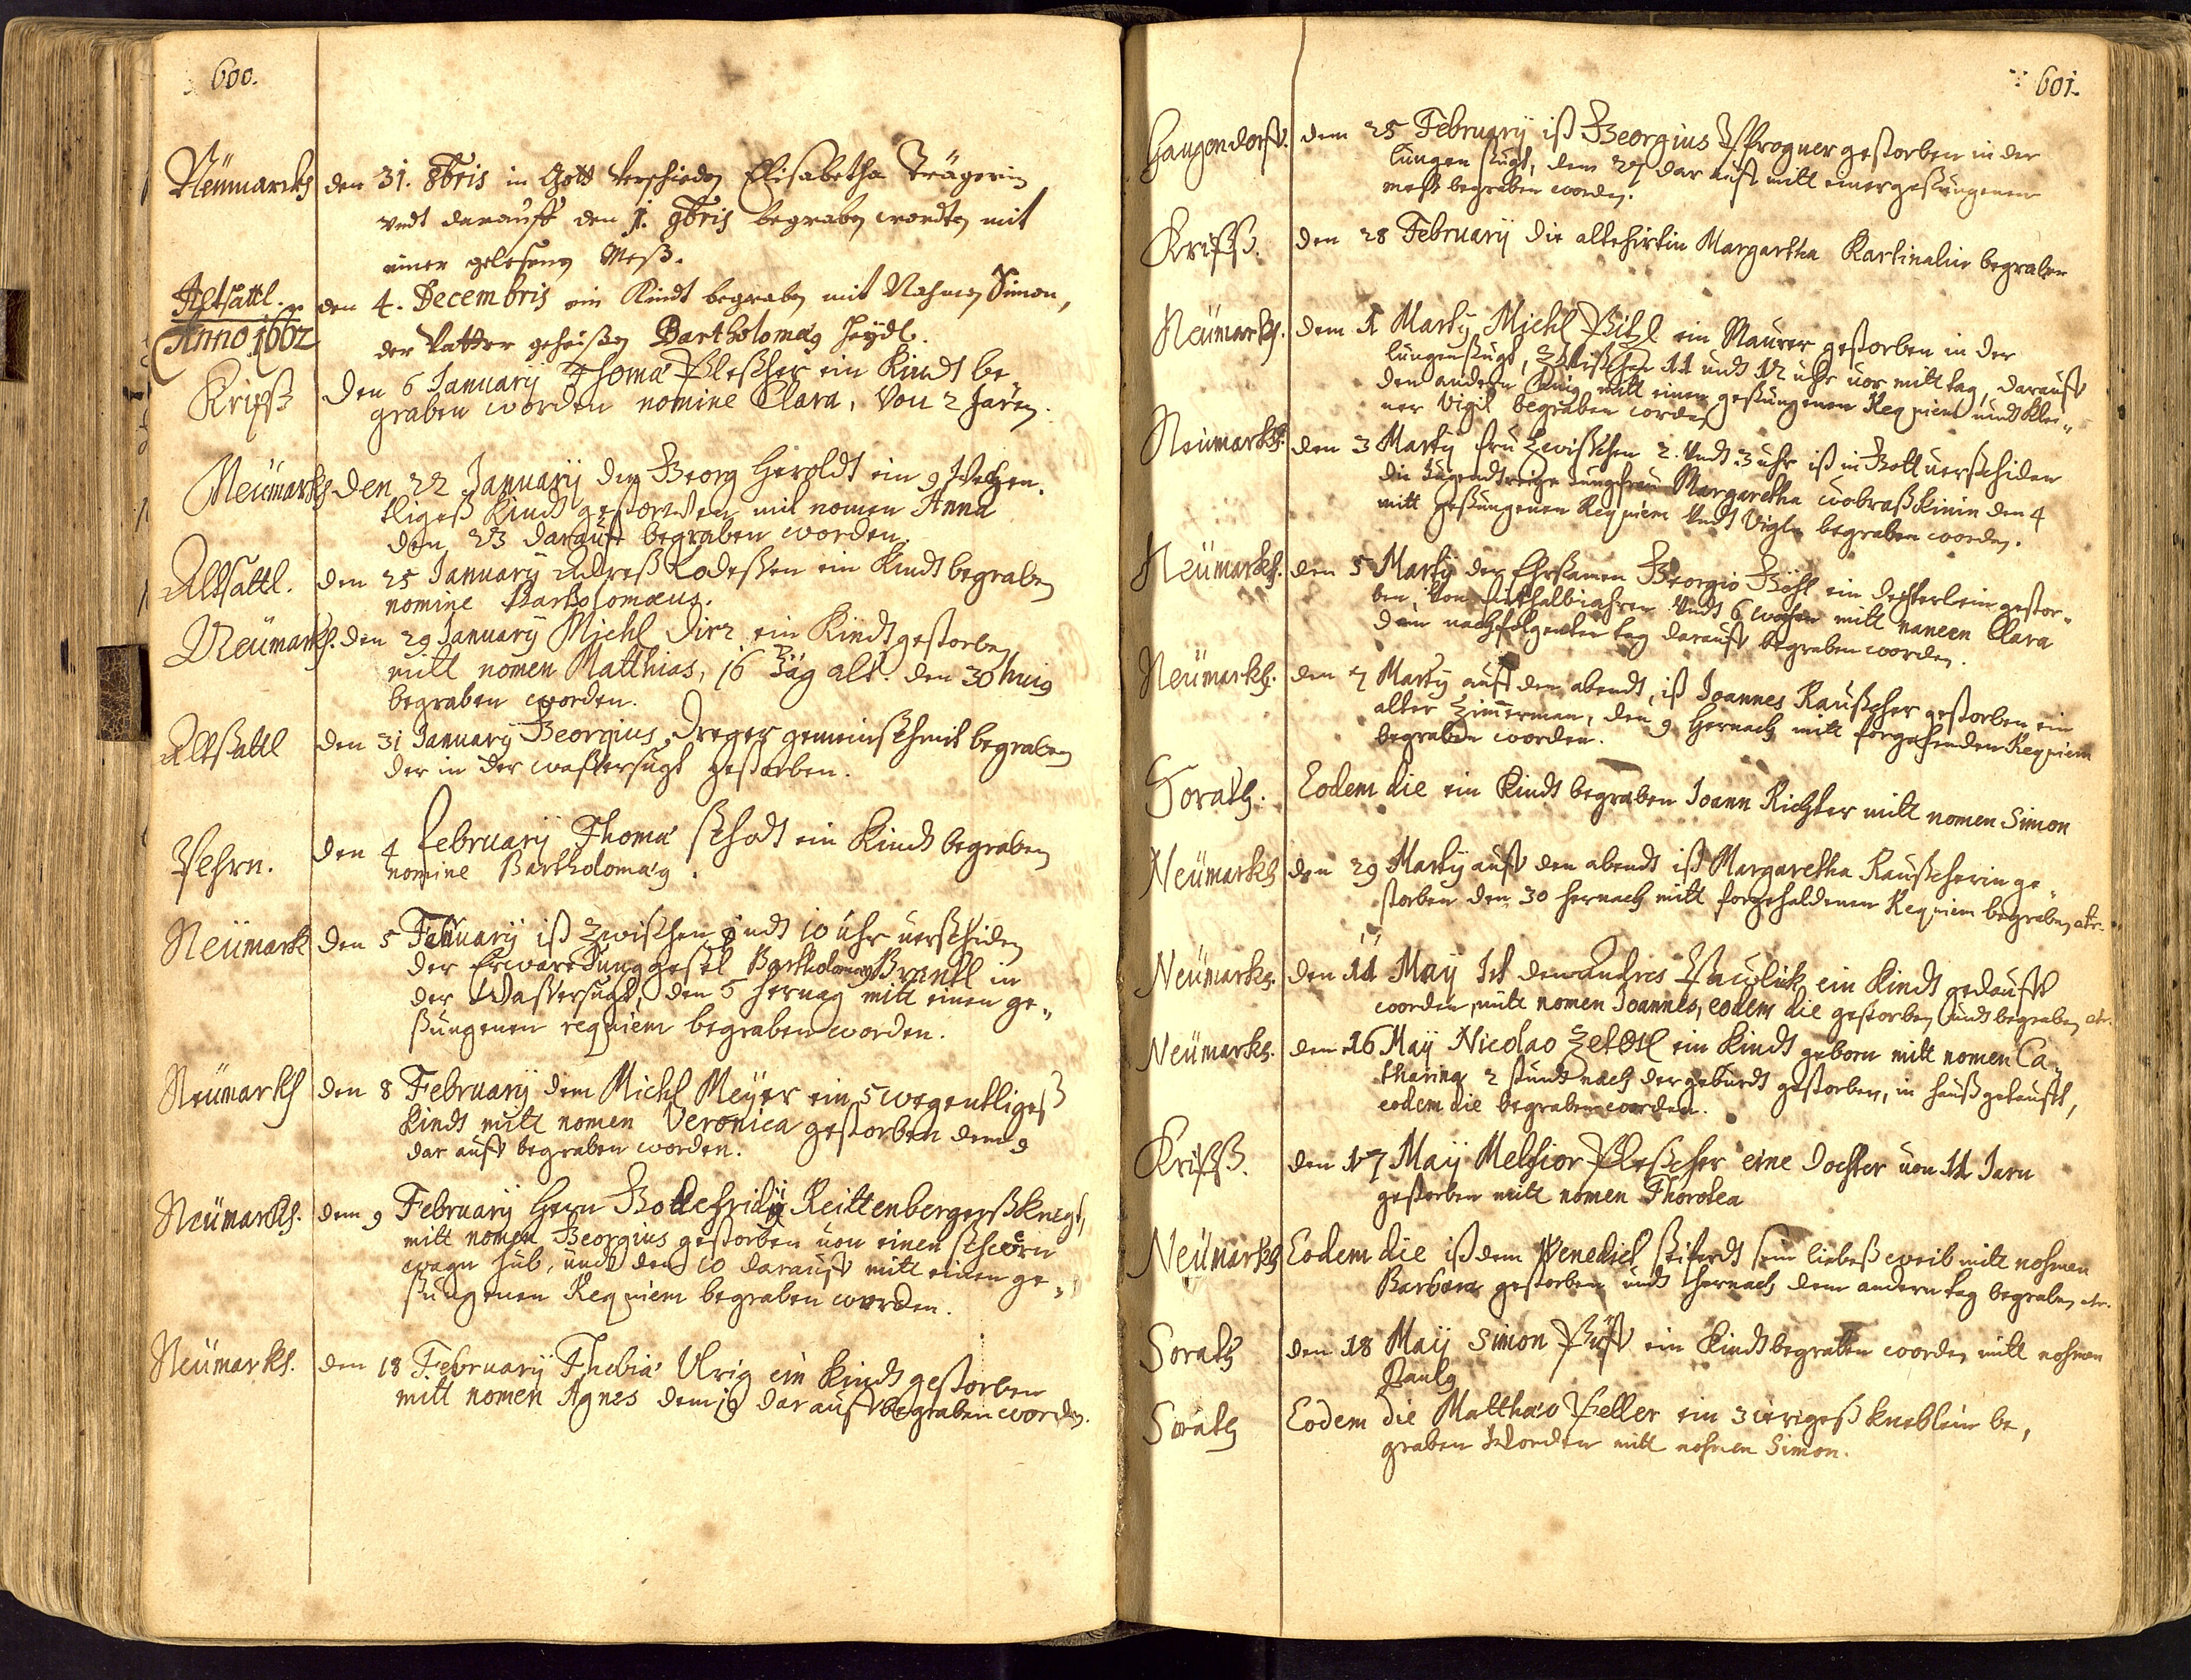 600.
Neümarckh den 31. 8bris in Gott verschieden Elisabetha Trägerin
vndt darauff den 1. 9bris begraben wordten mit
einer gelesenen Mess.
Altsattl. den 4. Decembris ein Kindt begraben mit Nahmen Simon,
der Vatter geheissen Bartholomaeg Heÿdl.
Anno 1662
Kripß den 6 Januarÿ Thoma Pleßcher ein Kindt be„
graben worden nomine Clara, von 2 Jaren.
Neümarkh den 22 Januarÿ dem Georg Heroldt ein 9 wochen„
tligeß Kindt gestorben mit nomen Anna
den 23 darauf begraben worden.
Altsattl. den 25 Januarÿ Adreß Lodeßen ein Kindt begraben
nomine Bartholomaeus.
Neümarkh. den 29 Januarÿ Michl Dirz ein Kindt gestorben
mitt nomen Matthias, 16 Täg alt. den 30 huig
begraben worden.
Altsattl den 31 Januarÿ Georgius Dreger gemeinschmit begraben
der in der waßersugt gestorben.
Pfehrn. den 4 Februarÿ Thoma schodt ein Kindt begraben
nomine Bartholomaeg.
Neümark den 5 Februarÿ iß zwischen 9 undt 10 uhr verschiden
der Ehrware Junggesel Bartholomaeg Brantl in
der Waßersugt, den 5 hernag mitt einen ge„
sungenen requiem begraben worden.
Neümarkh den 8 Februarÿ dem Michl Meÿer ein 5 wegentligeß
Kindt mitt nomen Veronica gestorben dem 9
darauff begraben worden.
Neümarkh. dem 9 Februarÿ Hern Gottefridÿ Reittenbergerß knegt,
mitt nomen Georgius gestorben von einen schwern
wagn hub, undt den 10 darauff mitt einen ge„
sungenen Requiem begraben worden.
Neümarkh. den 18 Februarÿ Thebia Ulrig ein Kindt gestorben
mitt nomen Agnes dem 19 darauff begraben worden.
601.
Haugendorff. dem 25 Februarÿ iß Georgius Progner gestorben in der
lungensugt, dem 27 darauff mitt einer gesungenen
meß begraben worden.
Kripß. den 28 Februarÿ die altehirtin Margartha Kartinalin begraben
Neümarkh. dem 1 Martÿ Michl Pitzl ein Maurer gestorben in der
lungensugt, zwischen 11 undt 12 uhr vor mittag, darauff
den andern huig mitt einem gesungenen Requiem undt klei„
ner Vigil begraben worden
Neümarkh. den 3 Martÿ fru zwischen 2 Undt 3 uhr iß in Gott verschiden
die tugendtreige Jungfrau Margaretha wobraßkinin den 4
mitt gesungenen Requiem Undt Vigln begraben worden.
Neümarkh. den 5 Martÿ dem Ehrsamen Georgio Göhl ein dechterlein gestor„
ben von halbiahren Undt 6 wochen mitt namen Clara
dem nachfolgenten tag darauff begraben worden.
Neümarkh. den 7 Martÿ auff den abendt, iß Joannes Raußcher gestorben ein
alter Zimmerman, den 9 hernach mitt forgehenden Requiem
begraben worden.
Sorath. Eodem die ein Kindt begraben Joann Richter mitt nomen Simon
Neümarkh den 29 Martÿ auff den abendt iß Margaretha Raußcherin ge„
storben den 30 hernach mitt forgehaldenem Requiem begraben etc.
Neümarkh. den 11 Maÿ Ist dem Andres Pawlick ein Kindt gedaufft
worden, mitt nomen Joannes, eodem die gestorben undt begraben etc.
Neümarkh. dem 16 Maÿ Nicolao Zettl ein Kindt geborn mitt nomen Ca„
tharina 2 stundt nach der geburdt gestorben, in hauß getaufft,
eodem die begraben worden.
Kripß. den 17 Maÿ Melchior Pleßcher eine Dochter von 11 Jarn
gestorben mitt nomen Thorotea
Neümarkh Eodem die iß dem Penedict seiferdt sein liebeß weib mitt nohmen
Barbara gestorben undt hernach dem andern tag begraben etc.
Sorath den 18 Maÿ Simon Puff ein Kindt begraben worden mitt nohmen
Paulg
Sorath Eodem die Matthaeo Peller ein 3 ierigeß kneblein be„
graben Worden mitt nohmen Simon.